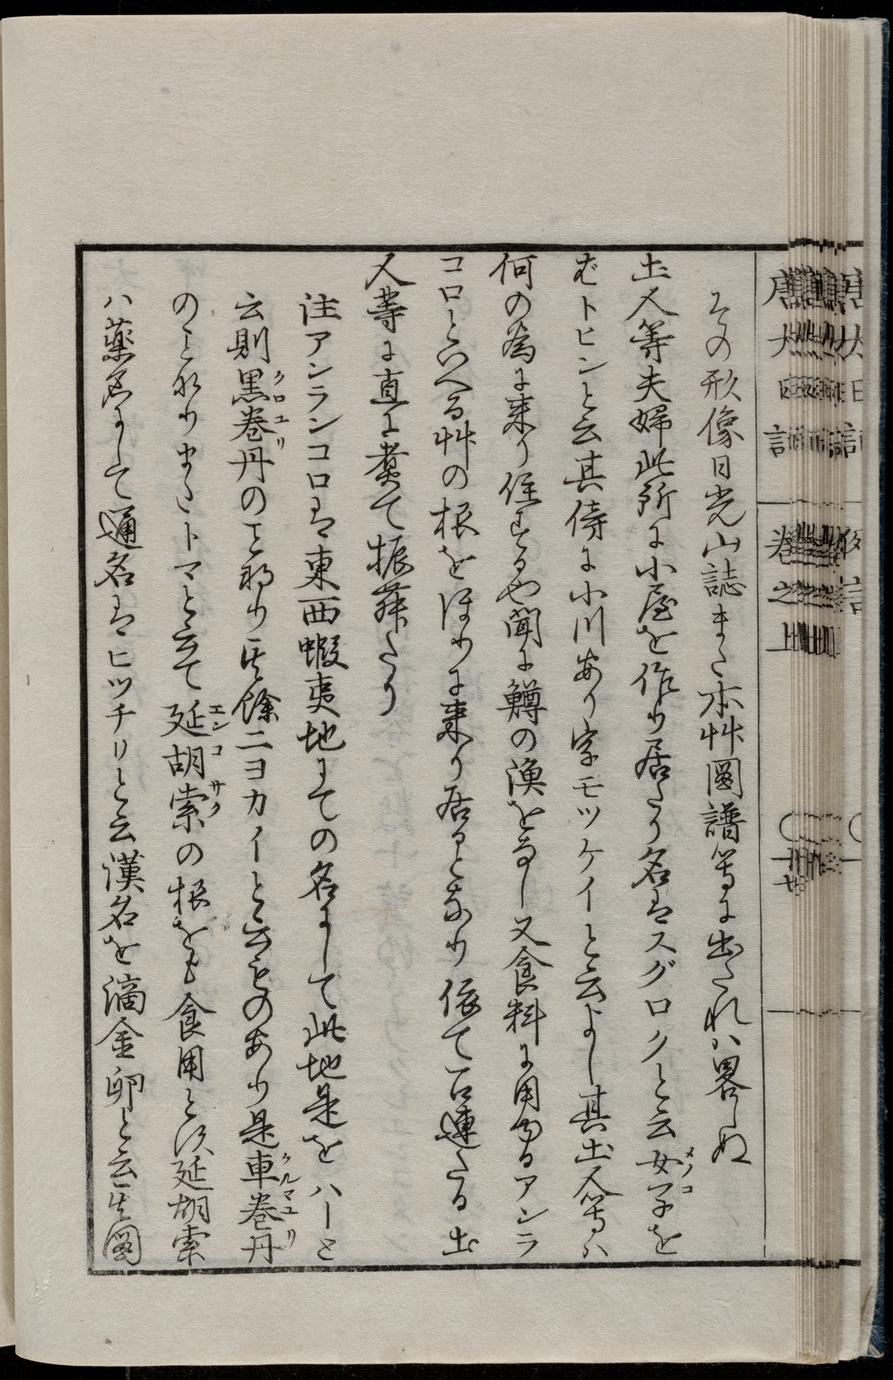 その形像日光山誌また本艸圖譜等に出たれハ畧しぬ
土人等夫婦此所に小屋を作り居たり名はスグロクと云女子を
むトヒンと云其傍に小川あり字モツケイと云よし其土人等ハ
何の為に来り住するや聞に鱒の漁をなし又食料に用ゆるアンラ
コロといへる艸の根をほりに来り居るとなり依て召連たる土
人等に直に煮て振舞たり
注アンランコロは東西蝦夷地にての名にして此地是をハーと
云則黒巻丹のこと也り其餘ニヨカイと云ものあり是車巻丹
のことなりまたトマと云て延胡索の根をも食用とす延胡索
ハ薬名にして通名はヒツチリと云漢名を滴金卵と云其圖
メノコ
クロユリ
クルマユリ
エンコサク
卷之上